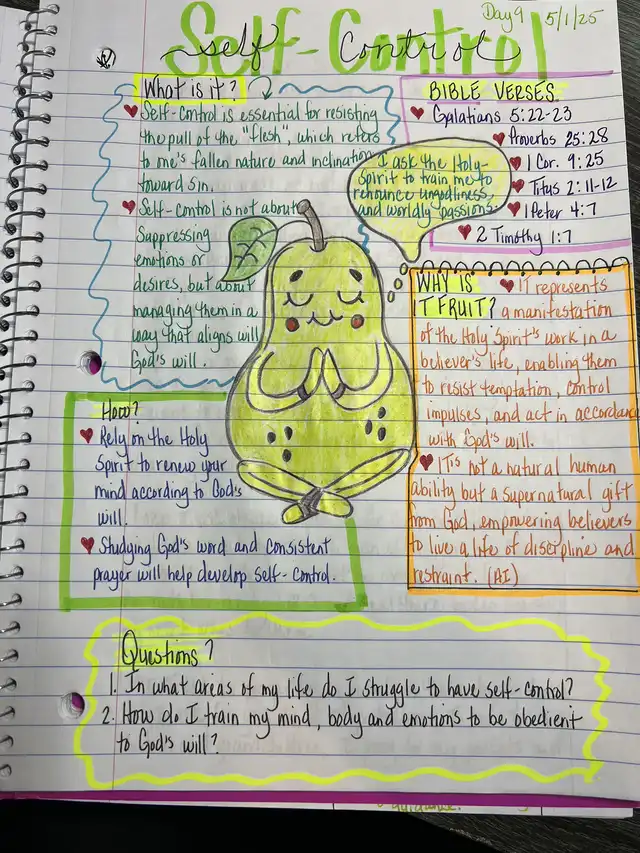 Day 9 5/1/25
Self-Control
self Control
What is it?
Self-control is essential for resisting
the pull of the "flesh", which refers
to one's fallen nature and inclination
toward sin.
Self-control is not about
suppressing
emotions or
desires, but about
managing them in a
way that aligns will
God's will.
BIBLE VERSES
Galatians 5:22-23
Proverbs 25:28
1 Cor. 9:25
Titus 2:11-12
1 Peter 4:7
2 Timothy 1:7
I ask the Holy-
Spirit to train me to
renounce ungodliness,
and worldly passions.
WHY IS
IT FRUIT?
IT represents
a manifestation
of the Holy Spirit's work in a
believer's life, enabling them
to resist temptation, control
impulses, and act in accordance
with God's will.
IT is not a natural human
ability but a supernatural gift
from God, empowering believers
to live a life of discipline and
restraint. (AI)
How?
Rely on the Holy
Spirit to renew your
mind according to God's
will.
Studying God's word and consistent
prayer will help develop self-control.
Questions?
1. In what areas of my life do I struggle to have self-control?
2. How do I train my mind, body and emotions to be obedient
to God's will?
guidance.